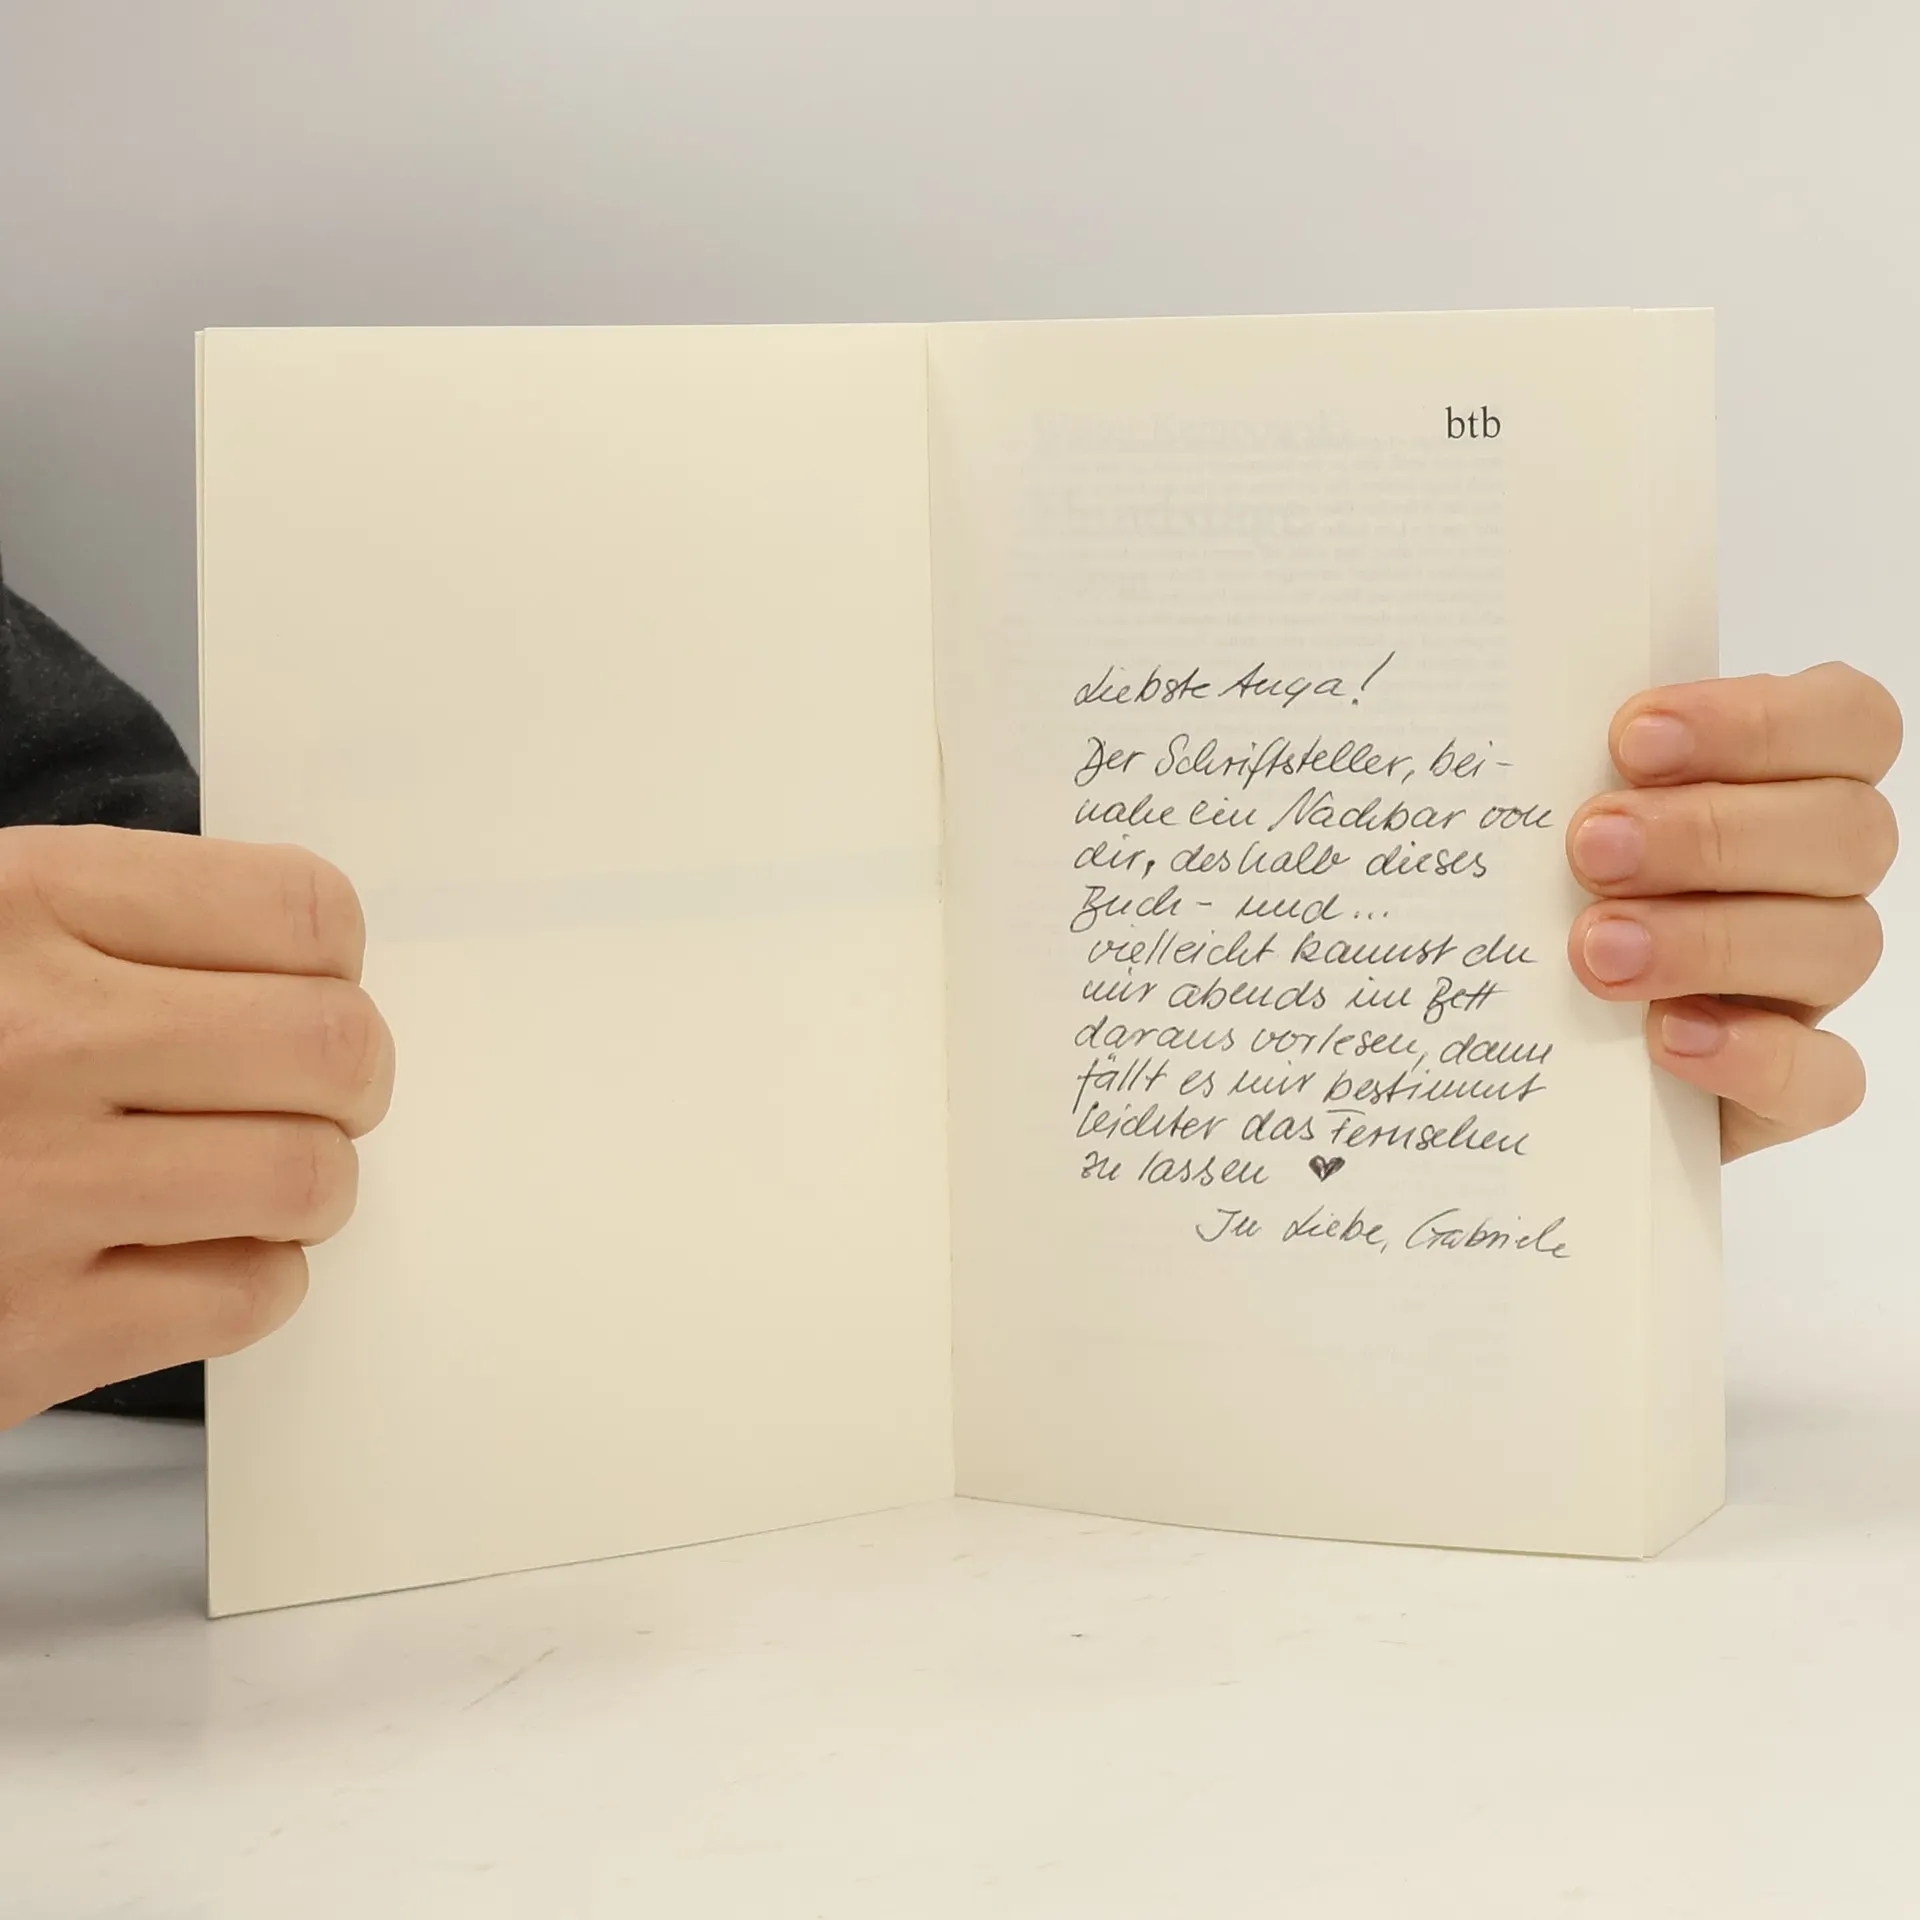 btb
Liebste Anga!
Der Schriftsteller, bei-
nahe ein Nachbar von
dir, deshalb dieses
Buch - und...
vielleicht kannst du
mir abends im Bett
daraus vorlesen, dann
fällt es mir bestimmt
leichter das Fernsehen
zu lassen ♥
In Liebe, Gabriele